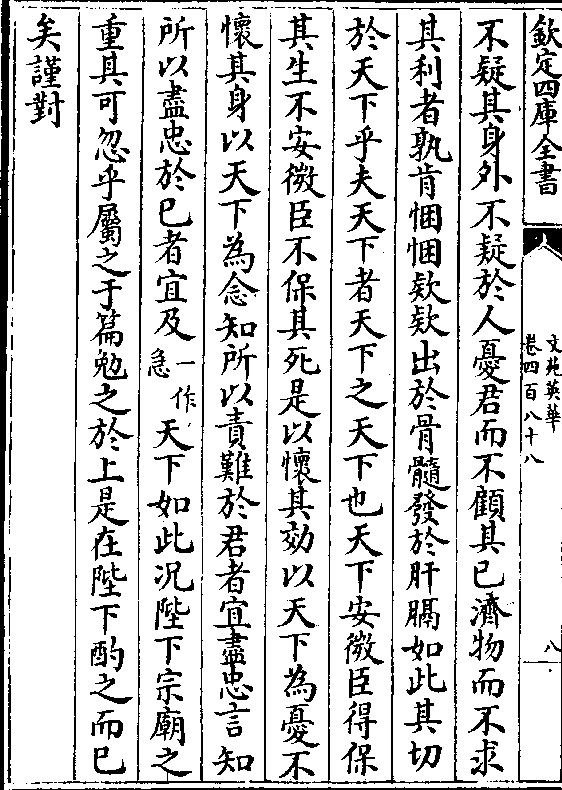 欽定四庫全書
文苑英華
卷四百八十八
八
不疑其身外不疑於人憂君而不顧其已濟物而不求
其利者孰肯悃悃欵欵出於骨髓發於肝膈如此其切
於天下乎夫天下者天下之天下也天下安微臣得保
其生不安微臣不保其死是以懷其効以天下為憂不
懷其身以天下為念知所以責難於君者宜盡忠言知
所以盡忠於已者宜及一作急天下如此况陛下宗廟之
重具可忽乎屬之于篇勉之於上是在陛下酌之而已
矣謹對